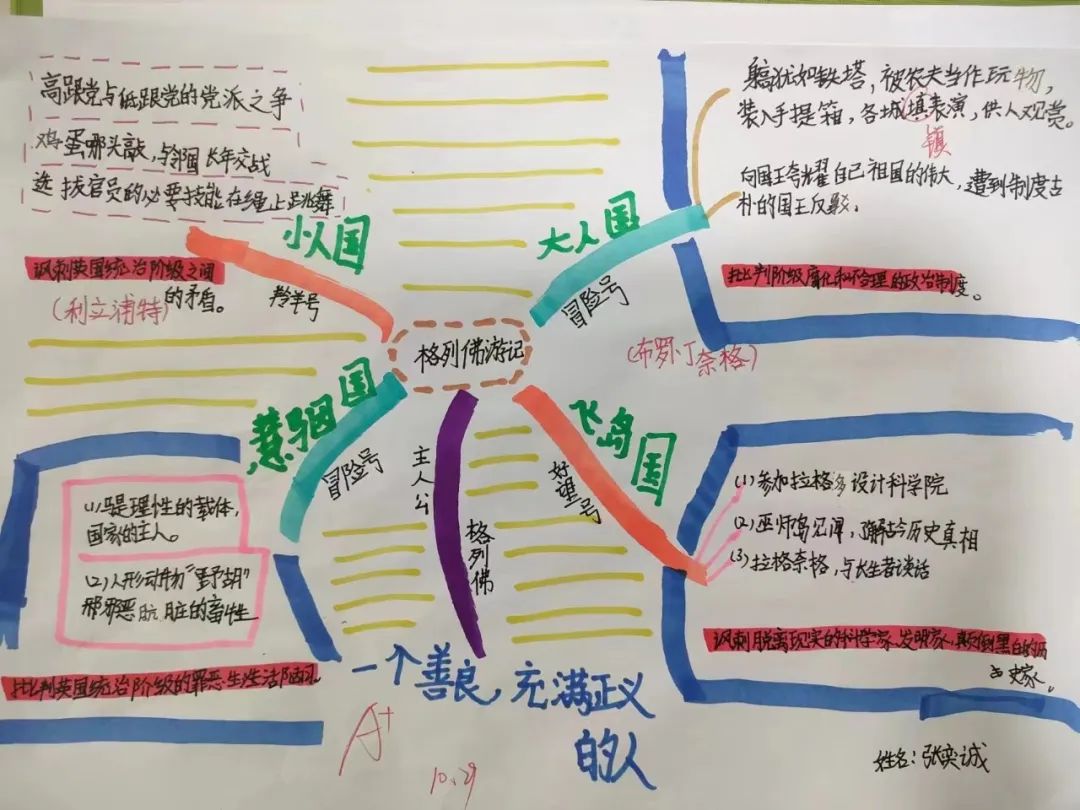 高跟党与低跟党的党派之争
鸡蛋哪头敲，与邻国长年交战
选拔官员的必要技能在绳上跳舞
小人国
羚羊号
讽刺英国统治阶级之间
的矛盾。
(利立浦特)
躯犹如铁塔，被农夫当作玩物，
装入手提箱，各城填表演，供人观赏。
镇
向国王夸耀自己祖国的伟大，遭到制度古
朴的国王反驳。
大人国
冒险号
批判阶级腐化和不合理的政治制度。
(布罗丁奈格)
格列佛游记
慧骃国
冒险号
(1)马是理性的载体，
国家的主人。
(2)人形动物“野胡”
邪恶肮脏的畜牲
批判英国统治阶级的罪恶生生活陋习。
主人公
格列佛
一个善良，充满正义
的人
飞岛国
好望号
(1)参加拉格多设计科学院
(2)巫师岛见闻，了解古今历史真相
(3)拉格奈格，与长生者谈话
讽刺脱离现实的科学家、发明家、颠倒黑白的历
史家。
A+
10.29
姓名：张奕诚